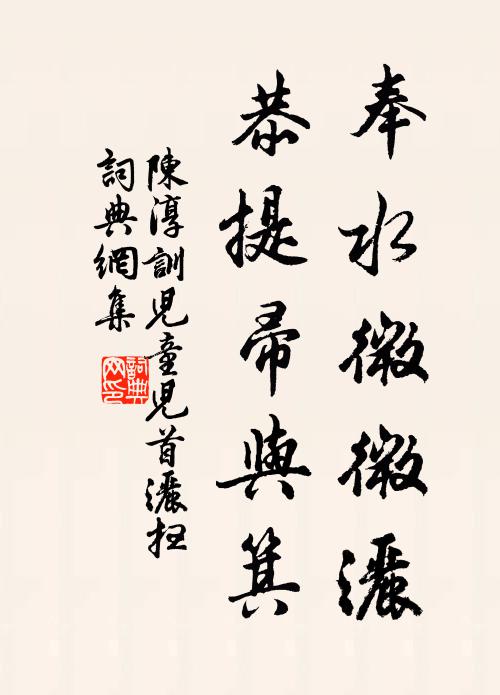 奉水微微灑
恭提帚與箕
陳淳訓兒童兒首灑扫
詞典網集
詞典网印